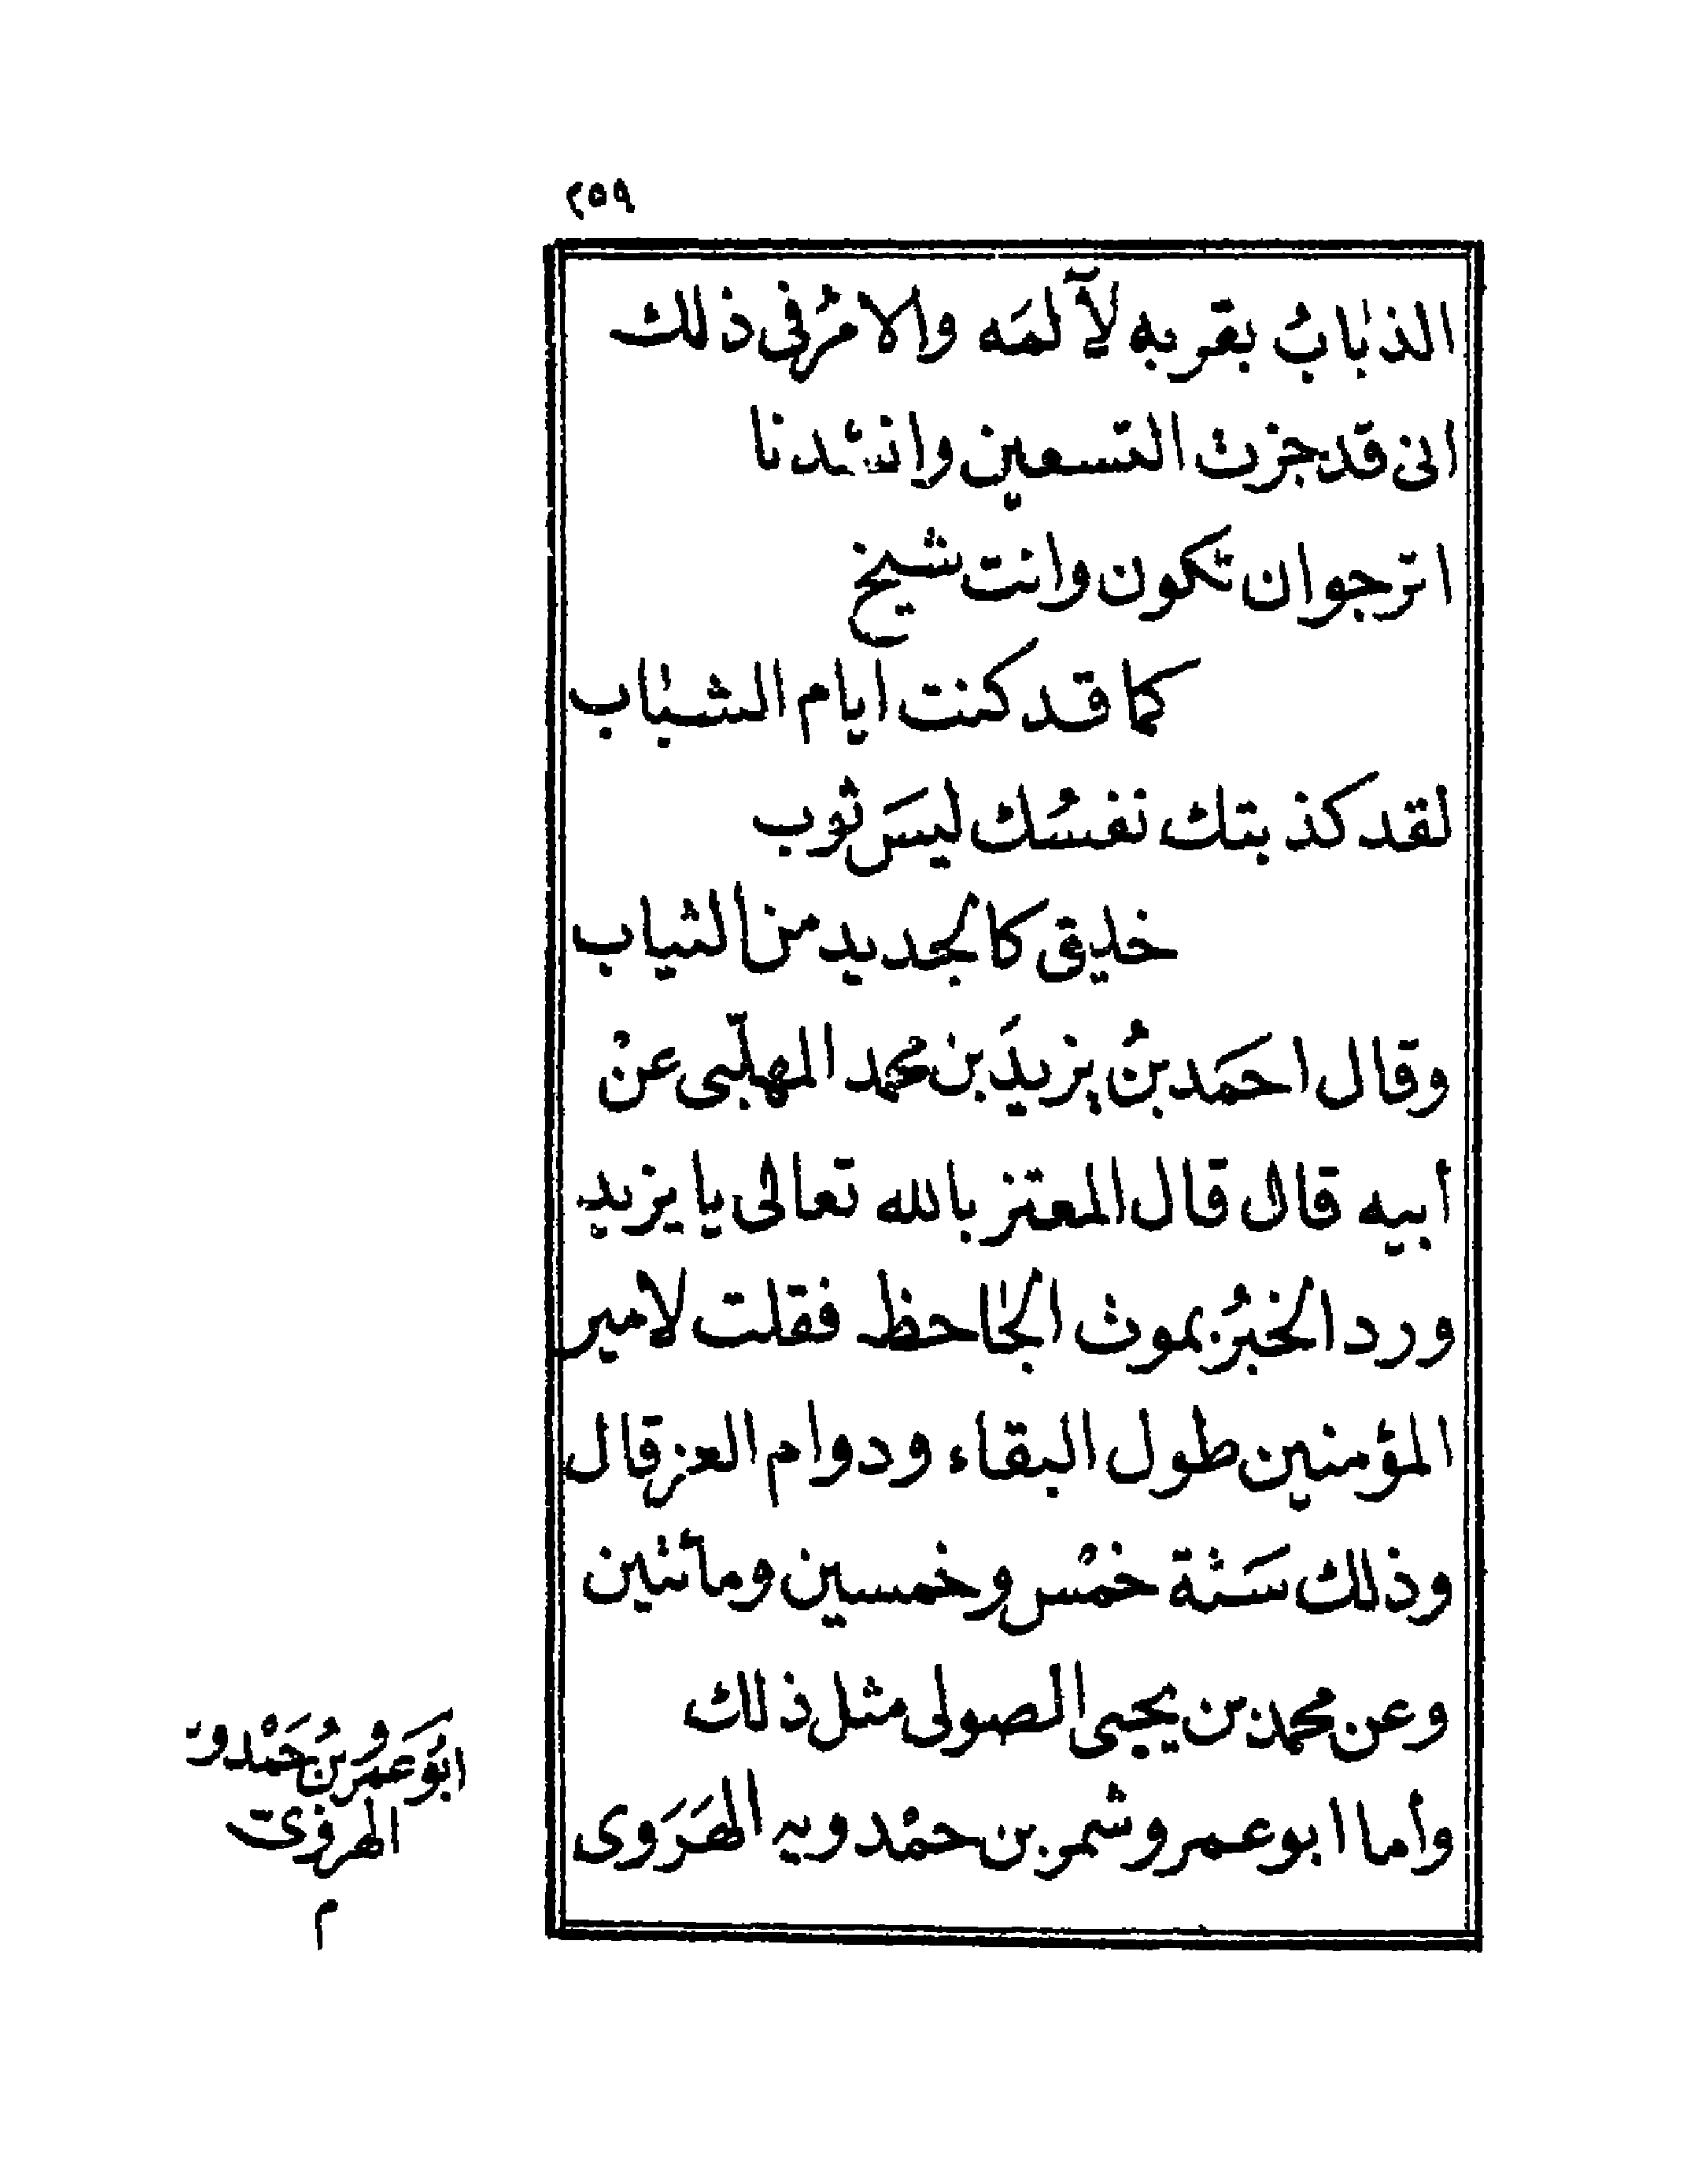 ٢٥٩
الذبابُ بقربه لآلمَه والامرُ فى ذلك
انى قد جزت التسعين وانشدنا
اترجو ان تكون وانت شيخ
كما قد كنت ايام الشباب
لقد كذبتك نفسُك ليسَ ثوب
خليق كالجديد من الثياب
وقال احمَد بنُ يزيدَ بن محمد المهلّبى عنْ
أبيه قال قال المعتز بالله تعالى يا يزيد
ورد الخبرُ بموت الجاحظ فقلت لامير
المؤمنين طول البقاء ودوام العز قال
وذلك سَنة خمْس وخمسين ومائتين
وعن محمد بن يحيى الصولى مثل ذلك
وأما ابو عمرو شمر بن حمْدويه الهَرَوى
ابُو عَمرو بنُ حَمْدون
الهروىّ
م